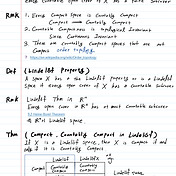 Rmk 1. Every Compact space is Countably Compact
2. Countable Compactness is topological Invariant
Since Continuous Invariant
3. There are Countably Compact spaces that are not
Compact order topology
Def (Lindelöf Property)
A space X has the Lindelöf property or is a Lindelöf
space if every open cover of X has a countable subcover
Rmk Lindelöf Thm in Rⁿ
Every open cover in Rⁿ has at most countable subcover
Rⁿ is Lindelöf space
Thm (Compact, Countably Compact in Lindelöf)
If X is a Lindelöf space, then X is compact if
and only if it is Countably Compact
Lindelöf
Compact
Lindelöf space